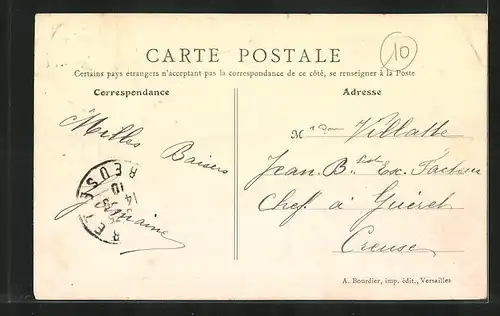 CARTE POSTALE
10
Certains pays étrangers n'acceptant pas la correspondance de ce côté, se renseigner à la Poste
Correspondance
Milles Baisers
Germaine
14
10
Adresse
M Villatte
Jean B. Ex. Facteur
Chef à Guéret
Creuse
A. Bourdier, imp. édit., Versailles